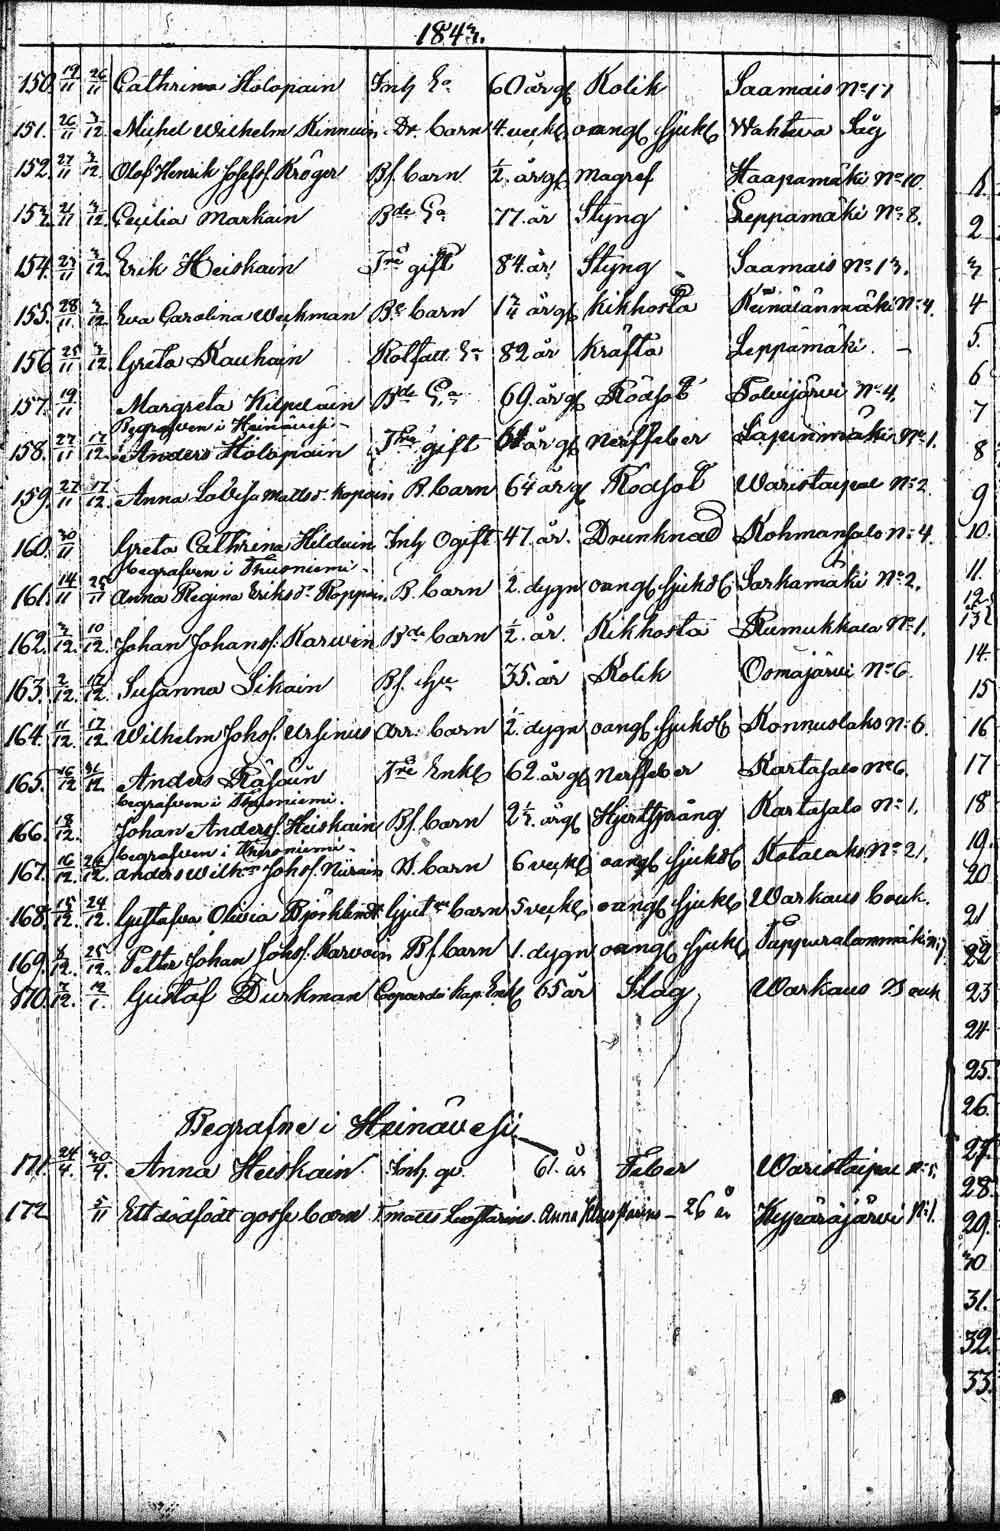 1843.
150. 19/11 26/11 Cathrina Holopain Inh Ea 60 år gl Kolik Saamais No 17
151. 26/11 3/12 Michel Wilhelm Kinnuin Dr. barn 4 veckr oangl sjukd Wahtwa Såg
152. 27/11 3/12 Olof Henrik Josefss. Kröger Bf. barn 1/2 år gl magref Haapamäki No 10.
153. 21/11 3/12 Cecilia Markain Bde Ea 77. år Styng Leppämäki No 8.
154. 23/11 3/12 Erik Heiskain Tre gift 84. år Styng Saamais No 13.
155. 28/11 3/12 Eva Carolina Weckman Bs barn 1 3/4 år gl Kikhosta Keinälänmäki No 4.
156 25/11 3/12 Greta Kauhain Rotfatt. Ea 82 år Kräfta Leppämäki. –
157. 19/11 Margreta Kilpeläin Bde Ea 69. år gl Rödsot Tolvijärvi No 4.
Begrafven i Heinävesi –
158. 27/11 17/12 Anders Holopain Tre gift år gl Nerffeber Lapinmäki No 1.
159. 27/11 17/12 Anna Lovisa Mattsdr Kopoin B. barn 64 år gl Rödsot Waristaipal No 2.
160. 30/11 Greta Cathrina Hilduin Inh Ogift 47. år. Drunknad Kohmansalo No 4.
begrafven i Thusniemi –
161. 14/11 25/11 Anna Regina Eriksdr Roppoin. B. barn 2. dygn oangl sjukd Sarkamäki No 2.
162. 3/12. 10/12. Johan Johanss. Karvin Bde barn 1/2. år. Kikhosta Rumukkala No 1.
163. 2/12. 12/12. Susanna Sikain Bf. 35. år Kolik Osmajärvi No 6.
164. 11/12. 17/12. Wilhelm Johss. Ursinus Arr. barn 1/2. dygn oangl sjukd Konnuslaks No 6.
165. 16/12 31/12. Anders Räsäin Tre Enkl 62. år gl Nerffeber Kartasalo No 6.
begrafven i Thusniemi.
166. 18/12. Johan Anderss. Heiskain Bf. barn 2 1/2. år gl Hjertsprång Kartasalo No 1.
begrafven i Thusniemi –
167. 16/12. 24/12. Anders Wilhm Johss. Nurain D. barn 6 veckr oangl sjukd Kotalaks No 21.
168. 15/12. 24/12. Gustafva Olivia Björklindt Gjutre barn 5 veckr oangl sjukd Warkaus bruk.
169. 25/12. Petter Johan Johss. Karvoin Bf. barn 1. dygn oangl sjukd
170. Gustaf Durkman Enkl 65 år Slag Warkaus Bruk
Begrafne i Heinävesi
171. 24/4. 30/4. Anna Heiskain Inh. qv. 61. år Feber Waristaipal No 5.
172 5/11 Ett dödfödt gosse barn – 26 år Kypäräjärvi No 1.
1.
2
3
4
5.
6
7
8
9
10.
11.
12.
13
14.
15
16
17
18
19.
20
21
22
23
24
25.
26.
27.
28.
29.
30
31.
32.
33.